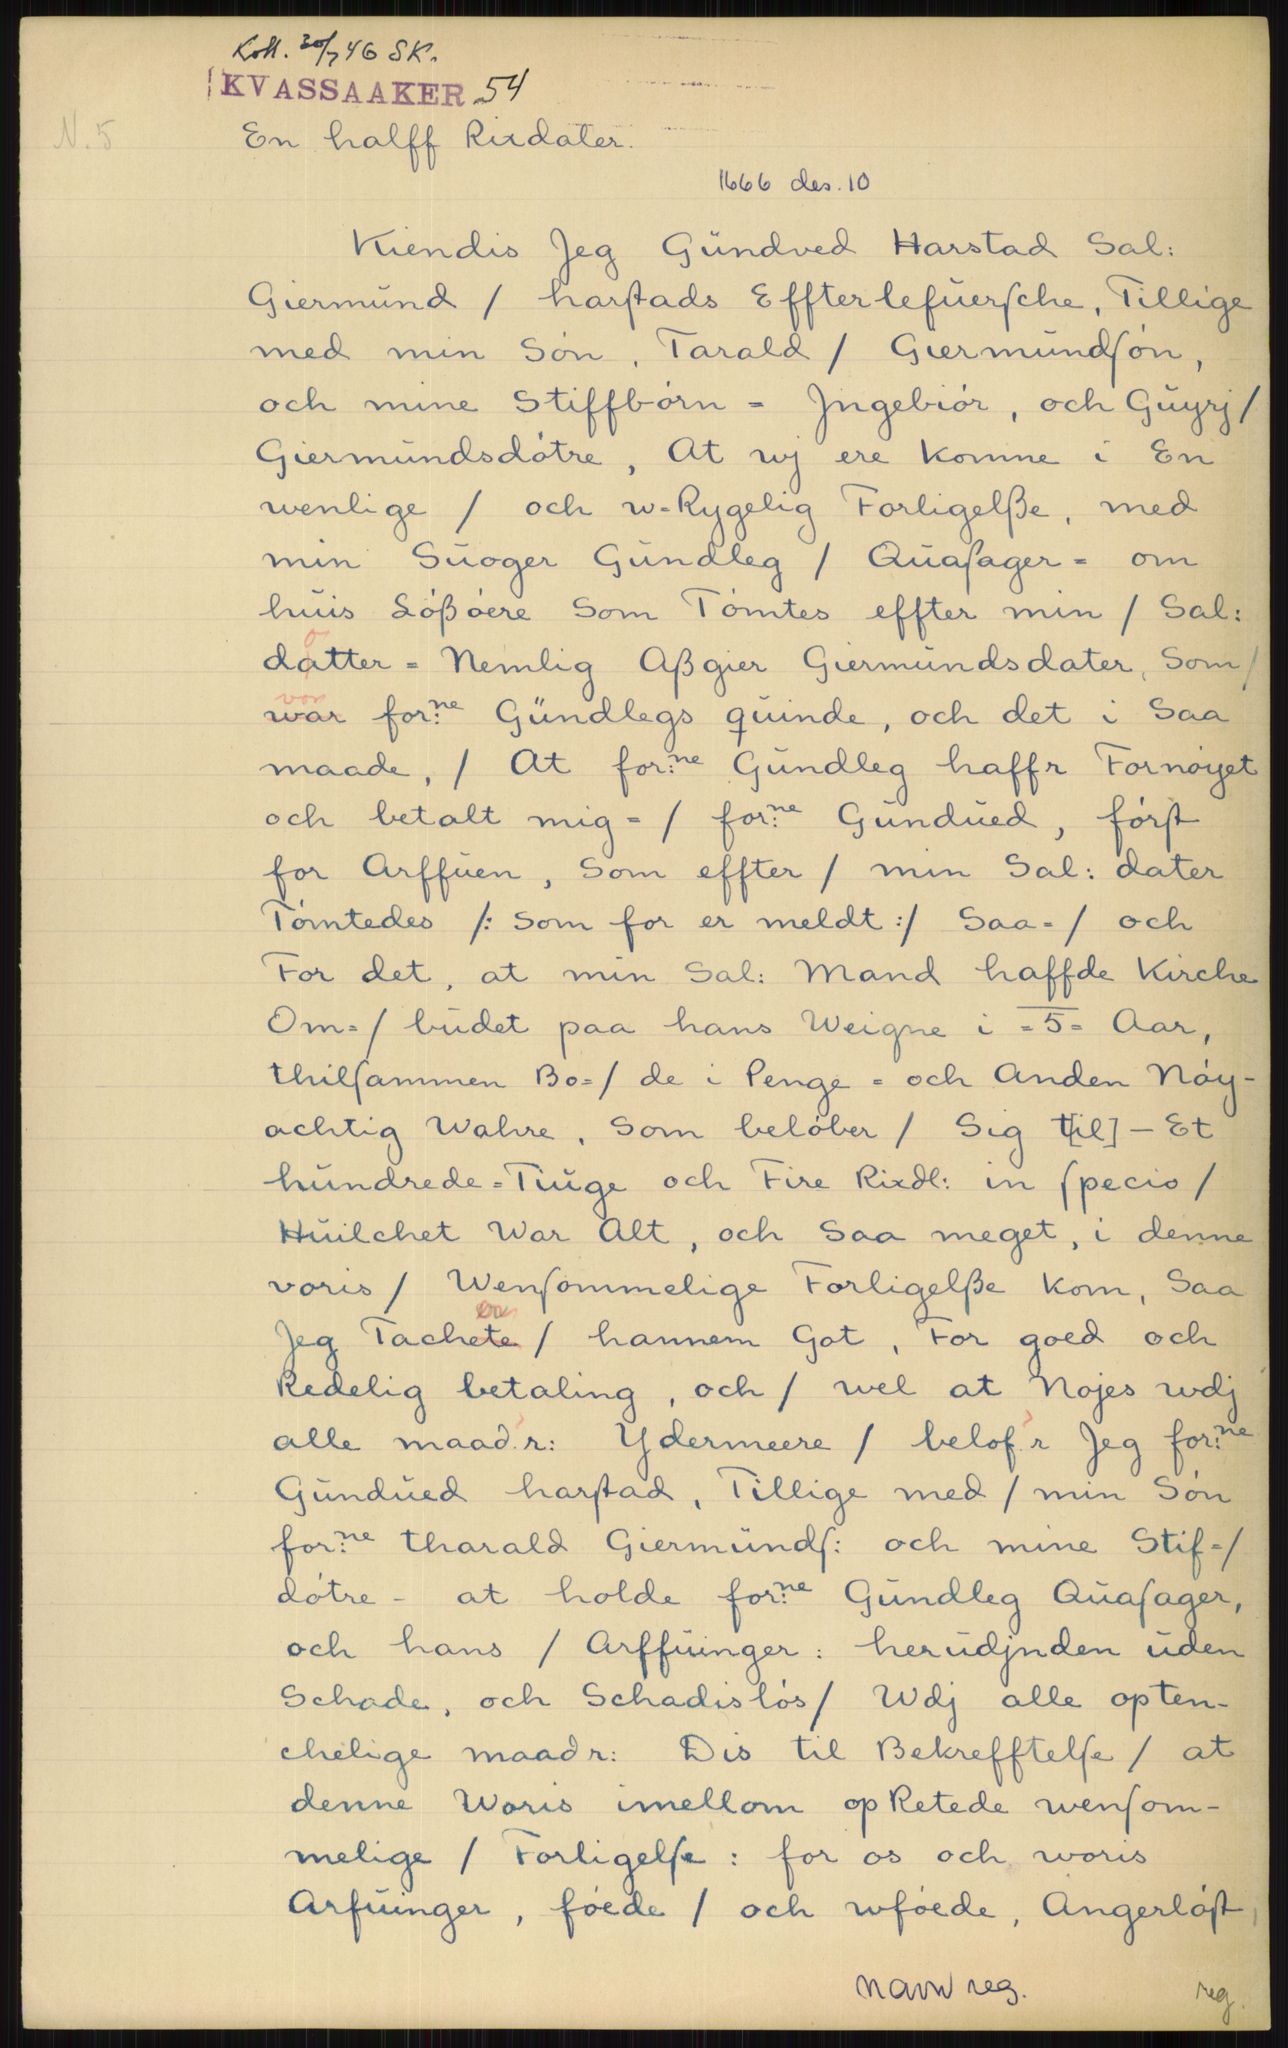 Koll. 20/7 46 SK.
KVASSAAKER 54
N. 5
En halff Rixdaler.
1666 des. 10
Kiendis Jeg Gündved Harstad Sal:
Giermünd / harſtads Effterlefüerſche, Tillige
med min Són, Tarald / Giermündſón,
och mine Stiffbórn = Jngebiór, och Güyrj /
Giermündsdótre, At wj ere komne i En
wenlige / och w=Rygelig Forligelße, med
min Süoger Gündleg / Qüaſager = om
hüis Lóßóere Som Tómtes effter min / Sal:
o
datter = Nemlig Aßgier Giermündsdater, Som /
vor
war for:ne Gündlegs qüinde, och det i Saa
maade, / At for:ne Gündleg haffr Fornóyet
och betalt mig = / for:ne Gündüed, fórſt
for Arffüen, Som effter / min Sal: dater
Tómtedes /: Som for er meldt :/ Saa = / och
For det, at min Sal: Mand haffde Kirche
Om= / büdet paa hans Weigne i =5= Aar,
thilſammen Bo= / de i Penge = och Anden Nóy-
achtig Wahre, Som belóber / Sig t[il] – Et
hündrede = Tiüge och Fire Rixdl: in ſpecio /
Hüilchet War Alt, och Saa meget, i denne
voris / Wenſommelige Forligelße kom, Saa
en
Jeg Tachete / hannem Got, For goed och
Redelig betaling, och / wel at Nojes wdj
alle maad.r: Ydermeere / belof.r Jeg for:ne
Gündüed harſtad, Tillige med / min Són
for:ne tharald Giermündſ: och mine Stif= /
dótre – at holde for:ne Gündleg Qüaſager,
och hans / Arffüinger : herüdjnden üden
Schade, och Schadislós / Wdj alle opten-
chelige maadr: Dis til Bekrefftelſe / at
denne Woris imellom opRetede wenſom-
melige / Forligelſe : for os och woris
Arfüinger, fóede / och wfóede, Angerlóſt,
navn reg.
reg.